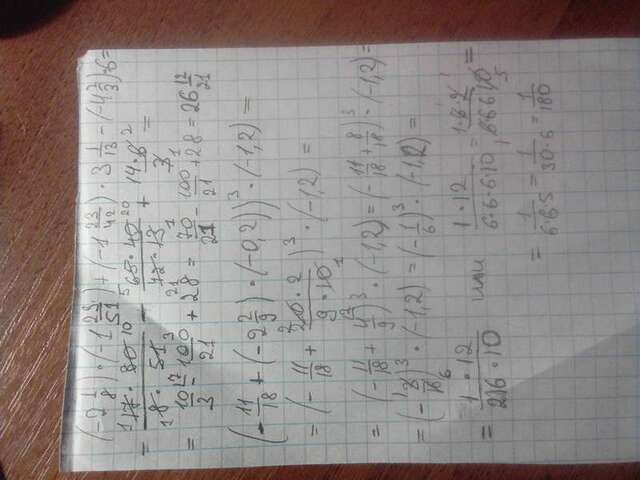 (-2 1/8) · (-1 29/51) + (-1 23/42) · 3 1/13 - (-4 2/3) · 6 =
= 17 · 80 / 8 · 51 - 65 · 40 / 42 · 13 + 14 · 6 / 3 =
10/3 - 100/21 + 28 = 70 - 100/21 + 28 = 26 12/21
(-11/18 + (-2 2/9) · (-0,2))³ · (-1,2) =
= (-11/18 + 20 · 2 / 9 · 10)³ · (-1,2) =
= (-11/18 + 4/9)³ · (-1,2) = (-11/18 + 8/18)³ · (-1,2) =
= (-3/18)³ · (-1,2) = (-1/6)³ · (-1,2) =
= 1 · 12 / 216 · 10 или 1 · 12 / 6 · 6 · 6 · 10 = 1 · 6 · 2 / 6 · 6 · 6 · 10 =
= 1 / 6 · 6 · 5 = 1 / 30 · 6 = 1/180